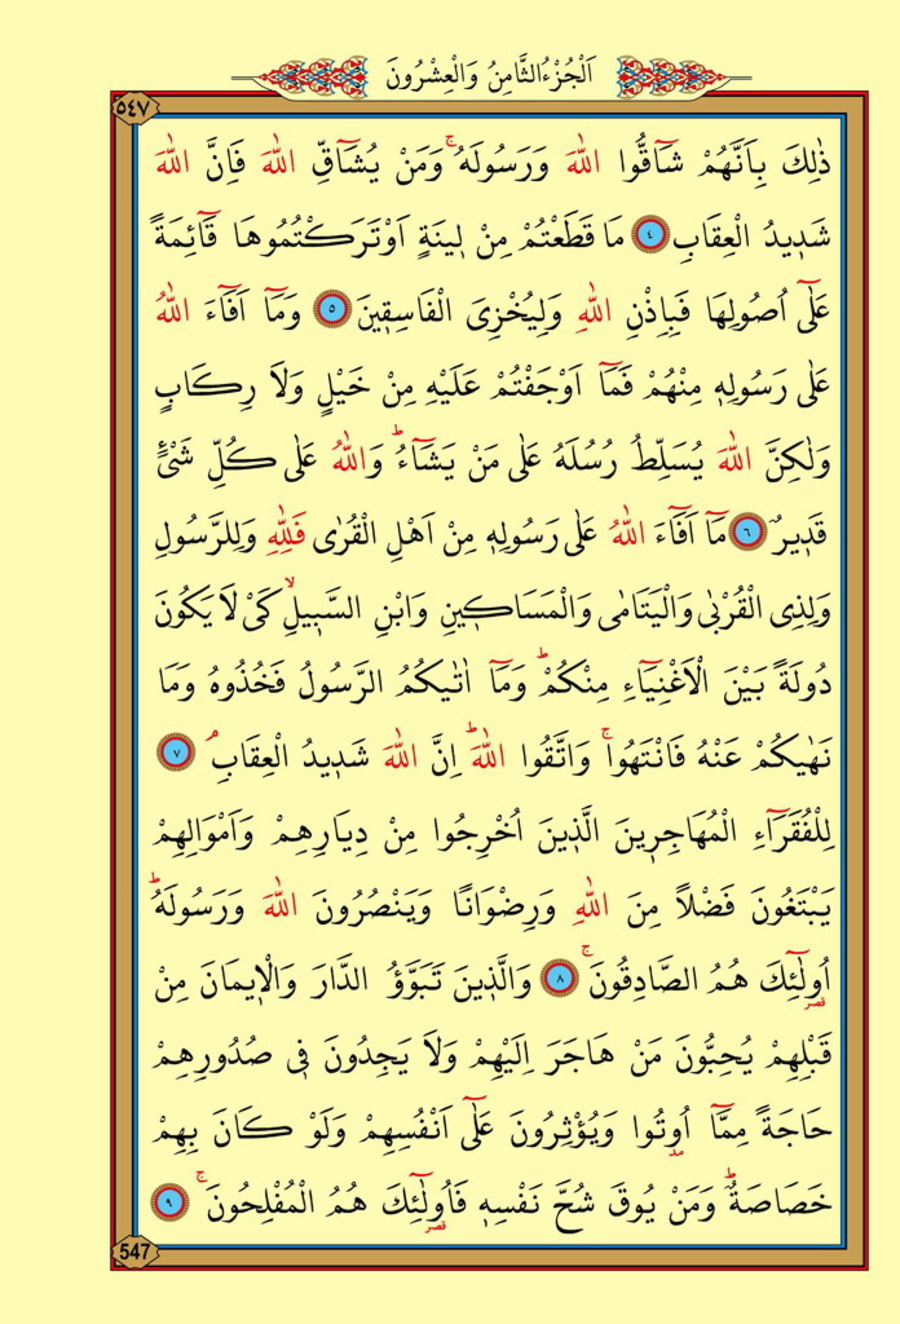 اَلْجُزْءُ الثَّامِنُ وَالْعِشْرُونَ
٥٤٧
ذٰلِكَ بِاَنَّهُمْ شَٓاقُّوا اللّٰهَ وَرَسُولَهُۚ وَمَنْ يُشَٓاقِّ اللّٰهَ فَاِنَّ اللّٰهَ
شَد۪يدُ الْعِقَابِ ٤ مَا قَطَعْتُمْ مِنْ ل۪ينَةٍ اَوْ تَرَكْتُمُوهَا قَٓائِمَةً
عَلٰٓى اُصُولِهَا فَبِاِذْنِ اللّٰهِ وَلِيُخْزِىَ الْفَاسِق۪ينَ ٥ وَمَٓا اَفَٓاءَ اللّٰهُ
عَلٰى رَسُولِه۪ مِنْهُمْ فَمَٓا اَوْجَفْتُمْ عَلَيْهِ مِنْ خَيْلٍ وَلَا رِكَابٍ
وَلٰكِنَّ اللّٰهَ يُسَلِّطُ رُسُلَهُ عَلٰى مَنْ يَشَٓاءُۜ وَاللّٰهُ عَلٰى كُلِّ شَىْءٍ
قَد۪يرٌ ٦ مَٓا اَفَٓاءَ اللّٰهُ عَلٰى رَسُولِه۪ مِنْ اَهْلِ الْقُرٰى فَلِلّٰهِ وَلِلرَّسُولِ
وَلِذِى الْقُرْبٰى وَالْيَتَامٰى وَالْمَسَاك۪ينِ وَابْنِ السَّب۪يلِۙ كَىْ لَا يَكُونَ
دُولَةً بَيْنَ الْاَغْنِيَٓاءِ مِنْكُمْۜ وَمَٓا اٰتٰيكُمُ الرَّسُولُ فَخُذُوهُ وَمَا
نَهٰيكُمْ عَنْهُ فَانْتَهُواۚ وَاتَّقُوا اللّٰهَۜ اِنَّ اللّٰهَ شَد۪يدُ الْعِقَابِۢ ٧
لِلْفُقَرَٓاءِ الْمُهَاجِر۪ينَ الَّذ۪ينَ اُخْرِجُوا مِنْ دِيَارِهِمْ وَاَمْوَالِهِمْ
يَبْتَغُونَ فَضْلًا مِنَ اللّٰهِ وَرِضْوَانًا وَيَنْصُرُونَ اللّٰهَ وَرَسُولَهُۜ
اُولٰٓئِكَ هُمُ الصَّادِقُونَۚ ٨ وَالَّذ۪ينَ تَبَوَّؤُ الدَّارَ وَالْا۪يمَانَ مِنْ
قصر
قَبْلِهِمْ يُحِبُّونَ مَنْ هَاجَرَ اِلَيْهِمْ وَلَا يَجِدُونَ ف۪ى صُدُورِهِمْ
حَاجَةً مِمَّٓا اُوتُوا وَيُؤْثِرُونَ عَلٰٓى اَنْفُسِهِمْ وَلَوْ كَانَ بِهِمْ
مد
خَصَاصَةٌۜ وَمَنْ يُوقَ شُحَّ نَفْسِه۪ فَاُولٰٓئِكَ هُمُ الْمُفْلِحُونَۚ ٩
قصر
547